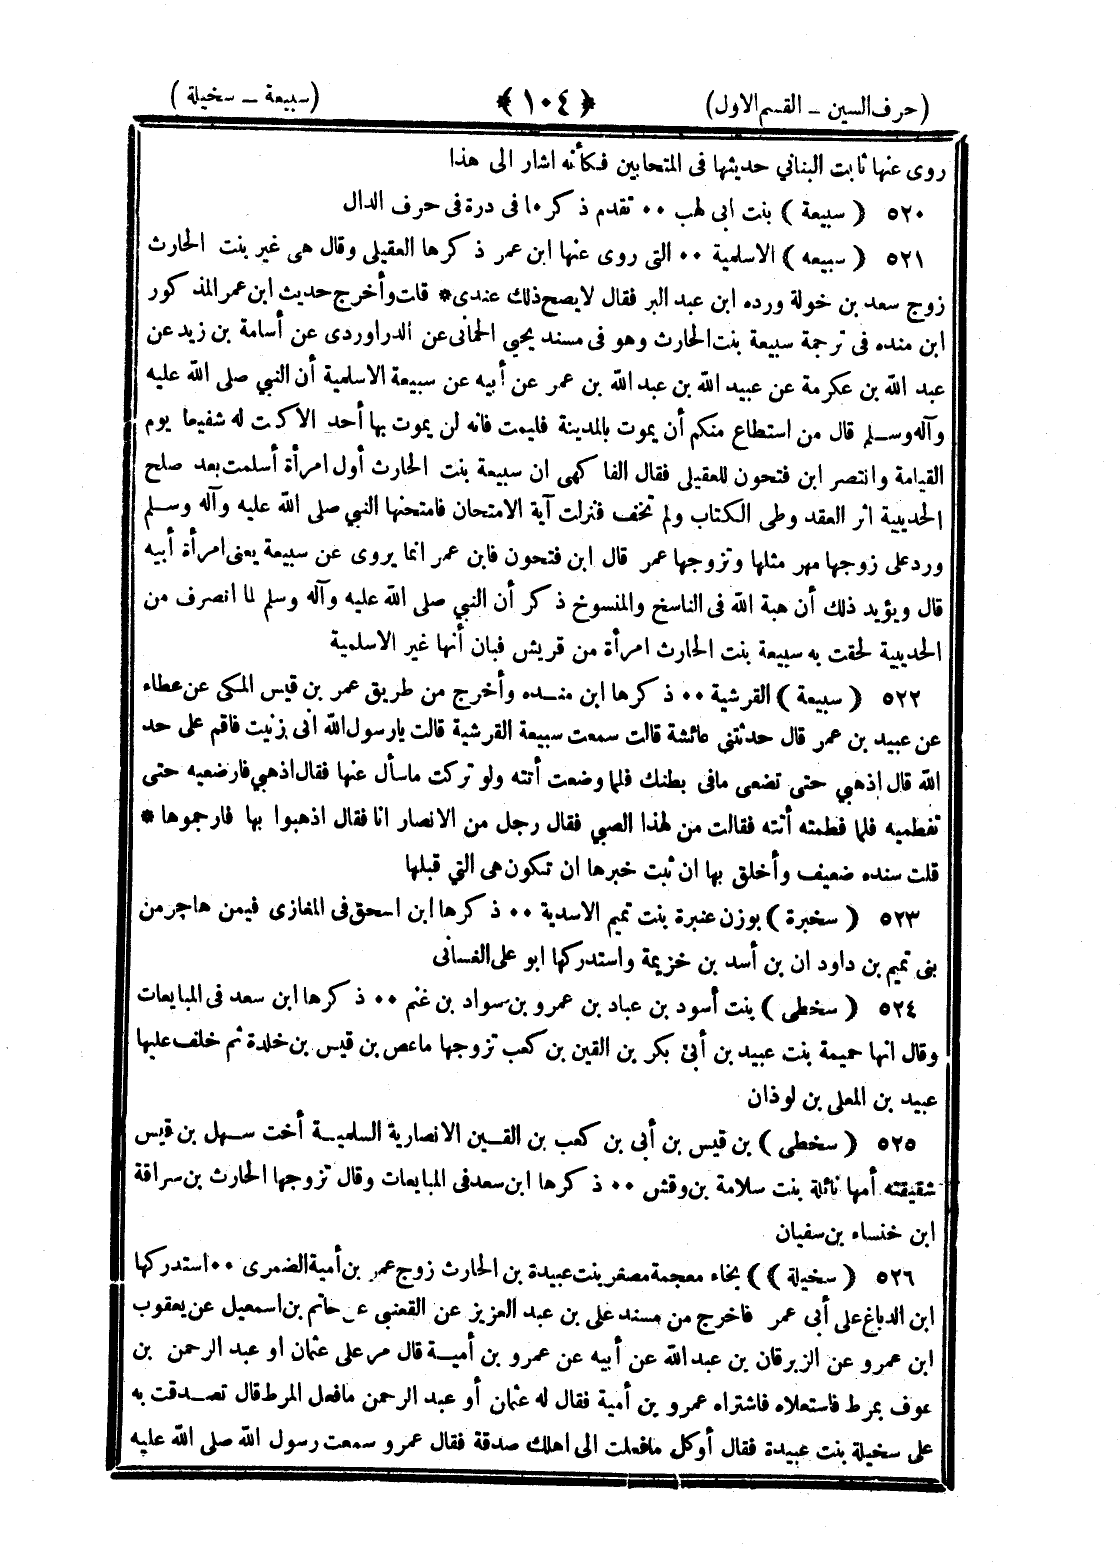 (حرف السين – القسم الاول) ﴿ ١٠٤ ﴾ (سبيعة – سخيلة)
روى عنها ثابت البناني حديثها فى المتحابين فكأنه اشار الى هذا
٥٢٠ (سبيعة) بنت ابى لهب ٠٠ تقدم ذكرها فى درة فى حرف الدال
٥٢١ (سبيعه) الاسلمية ٠٠ التى روى عنها ابن عمر ذكرها العقيلى وقال هى غير بنت الحارث
زوج سعد بن خولة ورده ابن عبد البر فقال لا يصح ذلك عندى * قلت وأخرج حديث ابن عمر المذكور
ابن منده فى ترجمة سبيعة بنت الحارث وهو فى مسند يحيى الحمانى عن الدراوردى عن أسامة بن زيد عن
عبد الله بن عكرمة عن عبيد الله بن عبد الله بن عمر عن أبيه عن سبيعة الاسلمية أن النبي صلى الله عليه
وآله وسلم قال من استطاع منكم أن يموت بالمدينة فليمت فانه لن يموت بها أحد الا كنت له شفيعا يوم
القيامة وانتصر ابن فتحون للعقيلى فقال الفاكهى ان سبيعة بنت الحارث أول امرأة أسلمت بعد صلح
الحديبية اثر العقد وطى الكتاب ولم تخف فنزلت آية الامتحان فامتحنها النبي صلى الله عليه وآله وسلم
ورد على زوجها مهر مثلها وتزوجها عمر قال ابن فتحون فابن عمر انما يروى عن سبيعة يعنى امرأة أبيه
قال ويؤيد ذلك أن هبة الله فى الناسخ والمنسوخ ذكر أن النبي صلى الله عليه وآله وسلم لما انصرف من
الحديبية لحقت به سبيعة بنت الحارث امرأة من قريش فبان أنها غير الاسلمية
٥٢٢ (سبيعة) القرشية ٠٠ ذكرها ابن منده وأخرج من طريق عمر بن قيس المكى عن عطاء
عن عبيد بن عمر قال حدثتني عائشة قالت سمعت سبيعة القرشية قالت يارسول الله انى زنيت فاقم على حد
الله قال اذهبي حتى تضعى مافى بطنك فلما وضعت أتته ولو تركت ماسأل عنها فقال اذهبي فارضعيه حتى
تفطميه فلما فطمته أتته فقالت من لهذا الصبي فقال رجل من الانصار انا فقال اذهبوا بها فارجموها *
قلت سنده ضعيف وأخلق بها ان ثبت خبرها ان تكون هى التي قبلها
٥٢٣ (سخبرة) بوزن عنبرة بنت تميم الاسدية ٠٠ ذكرها ابن اسحق فى المغازى فيمن هاجر من
بنى تميم بن داود ان بن أسد بن خزيمة واستدركها ابو على الغسانى
٥٢٤ (سخطى) بنت أسود بن عباد بن عمرو بن سواد بن غنم ٠٠ ذكرها ابن سعد فى المبايعات
وقال انها حميمة بنت عبيد بن أبى بكر بن القين بن كعب تزوجها ماعص بن قيس بن خلدة ثم خلف عليها
عبيد بن المعلى بن لوذان
٥٢٥ (سخطى) بن قيس بن أبى بن كعب بن القين الانصارية السلمية أخت سهل بن قيس
شقيقته أمها نائلة بنت سلامة بن وقش ٠٠ ذكرها ابن سعد فى المبايعات وقال تزوجها الحارث بن سراقة
ابن خنساء بن سفيان
٥٢٦ (سخيلة)) بخاء معجمة مصغر بنت عبيدة بن الحارث زوج عمر بن أمية الضمرى ٠٠ استدركها
ابن الدباغ على أبى عمر فاخرج من مسند على بن عبد العزيز عن القعنبى عن حاتم بن اسمعيل عن يعقوب
ابن عمرو عن الزبرقان بن عبد الله عن أبيه عن عمرو بن أمية قال مر على عثمان او عبد الرحمن بن
عوف بمرط فاستعلاه فاشتراه عمرو بن أمية فقال له عثمان أو عبد الرحمن مافعل المرط قال تصدقت به
على سخيلة بنت عبيدة فقال أو كل مافعلت الى اهلك صدقة فقال عمرو سمعت رسول الله صلى الله عليه